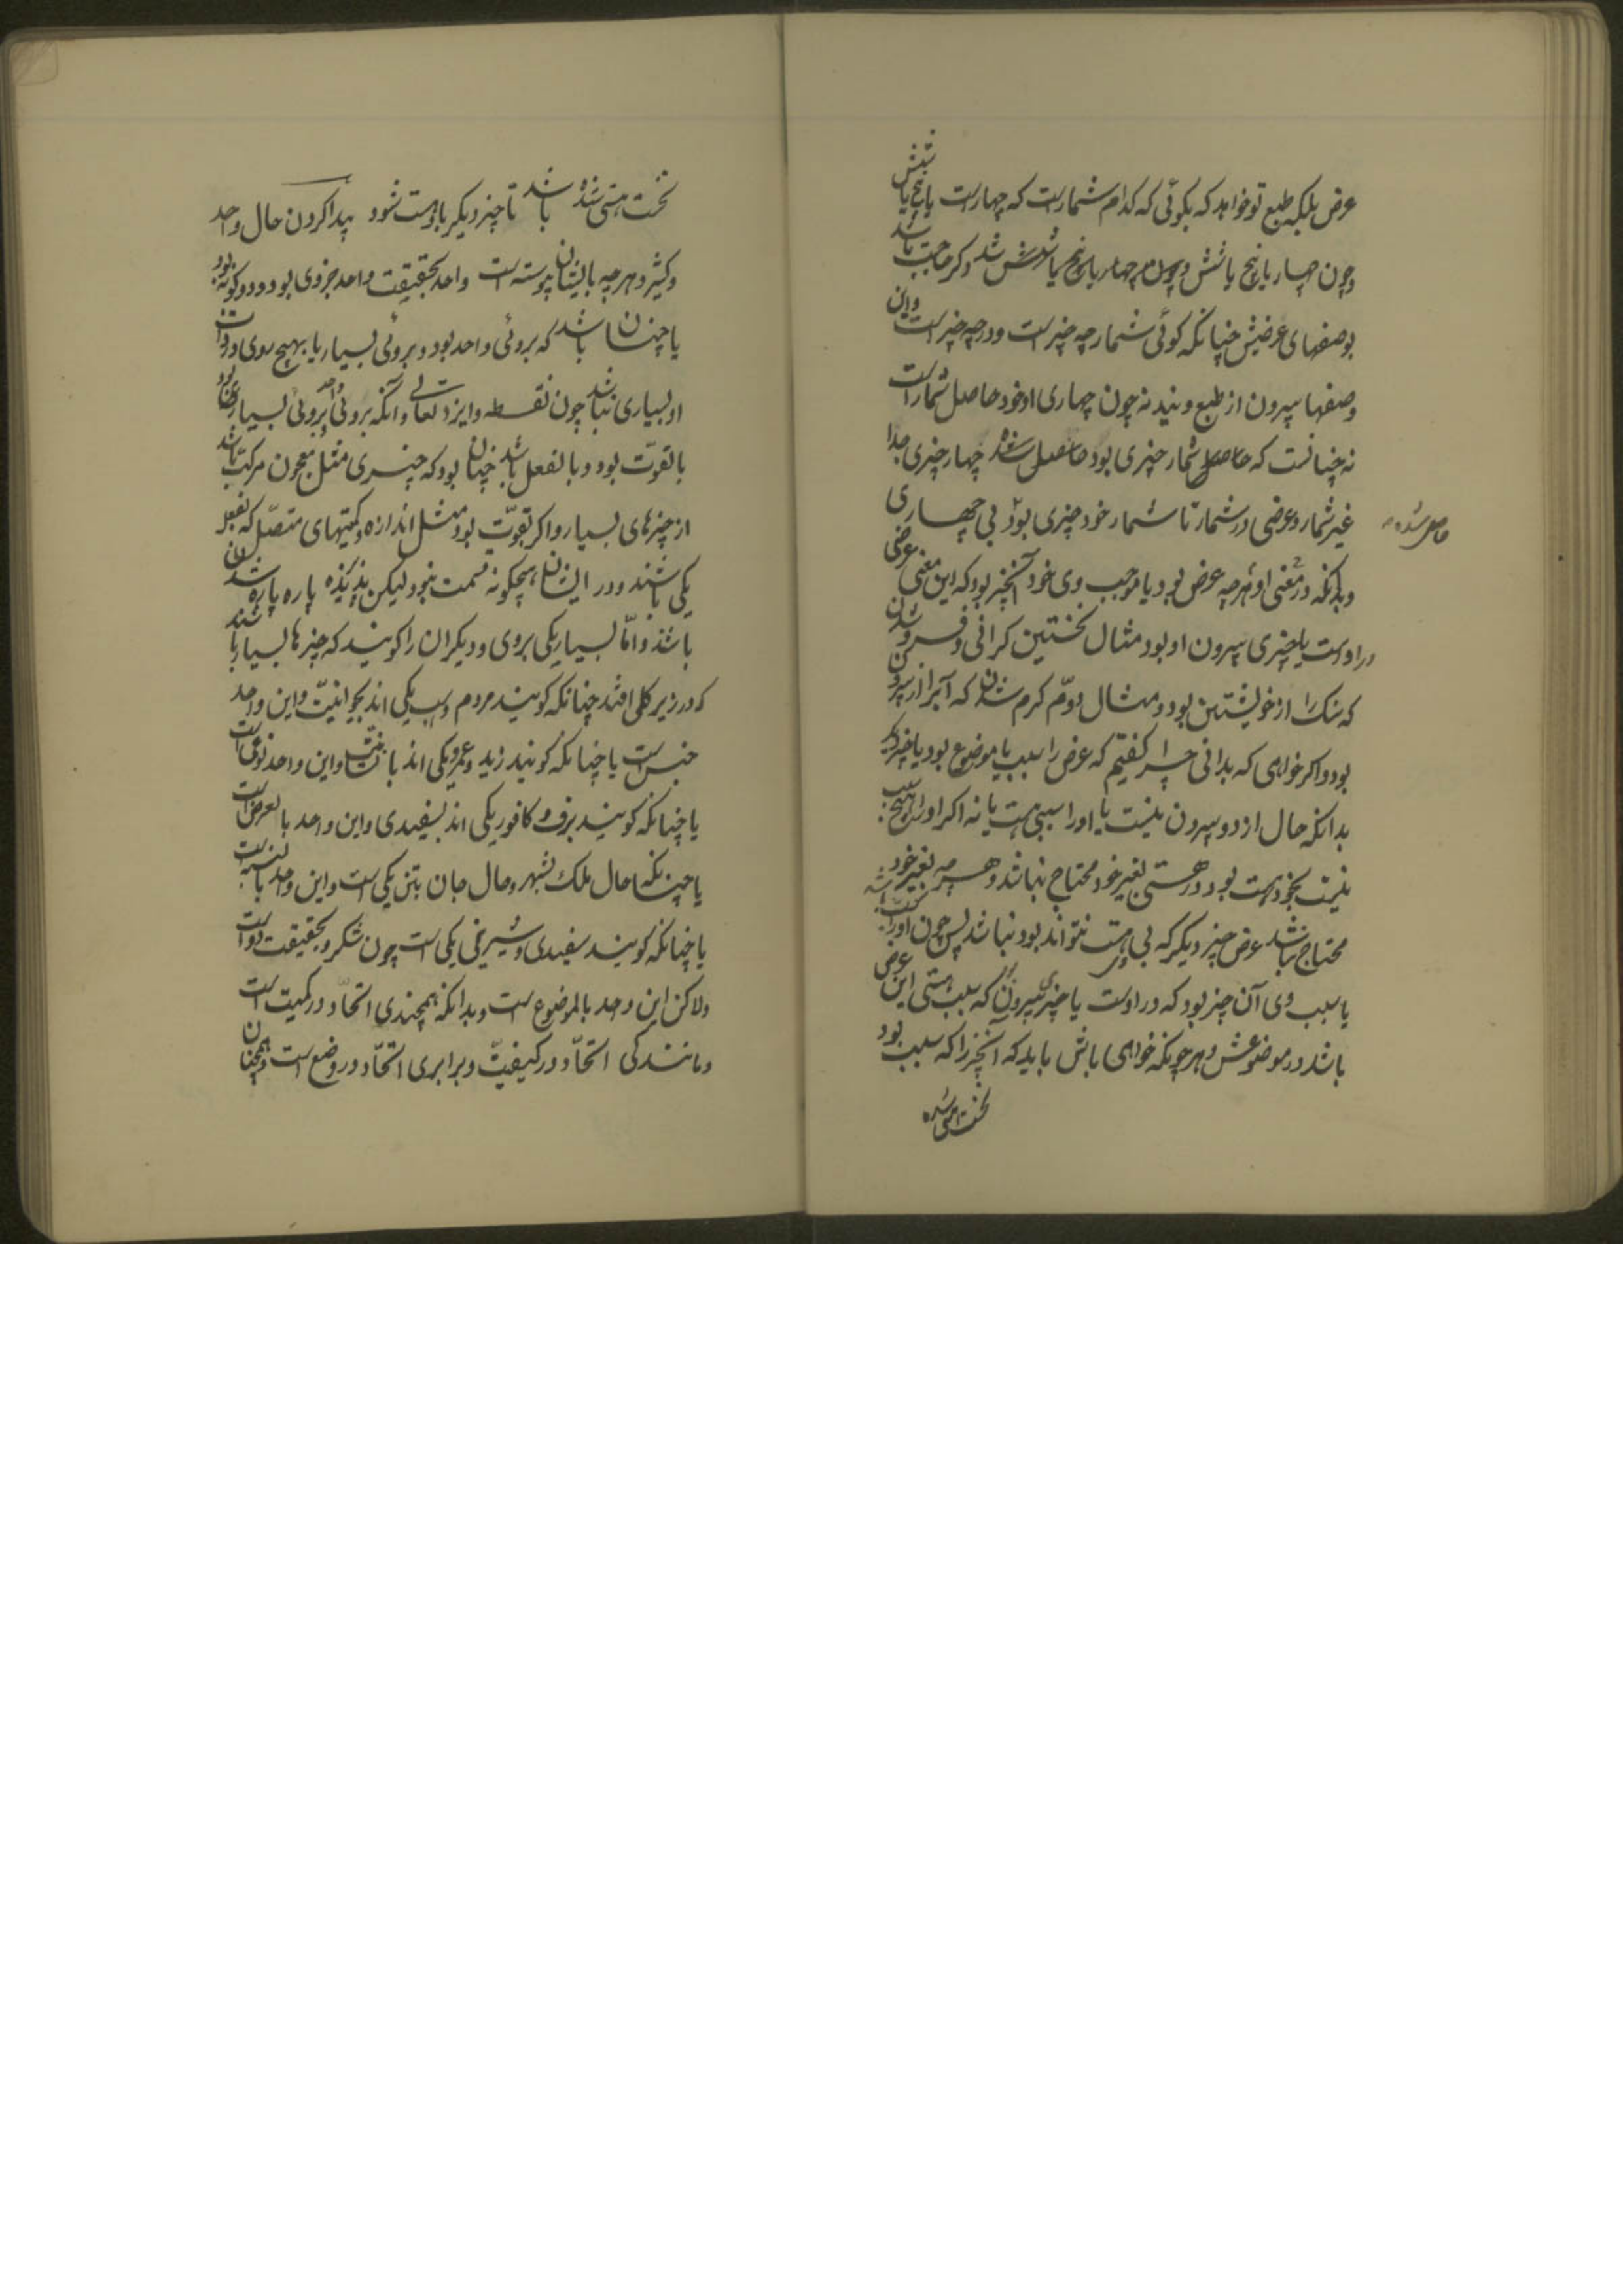 عرض بلکه طبع تو خواهد که بگوئی که کدام شمارست که چهارست یا پنج یا شش
و چون چهار یا پنج یا شش شد و کر حاجت باشد
بوصفهای عرضیش چنانکه کوئی شمار چه چیز است و در چه چیز است و این
وصفها بیرون از طبع ویند نه چون چهاری او خود حاصل شمار است
نه چنانست که حاصل شمار چیزی بود حاصل شده چهار چیزی جدا
غیر شمار و عرضی در شمار تا شمار خود چیزی بود بی چهاری
حاصل شده
و بدانکه در معنی او هرچه عرض بود یا موجب وی خود آنچیز بود که این معنی عرضی
در اوست یا چیزی بیرون او بود مثال نخستین کرانی و فرو شدن
که سنک را از خویشتن بود و مثال دوّم کرم شدن که آبرا از بیرون
بود و اکر خواهی که بدانی چرا کفتیم که عرض را سبب یا موضوع بود یا چیز دیکر
بدانکه حال از دو بیرون نیست یا او را سببی هست یا نه اکر او را هیچ سبب
نیست بخود هست بود و در هستی بغیر خود محتاج نباشد و هرچه بغیر خود
محتاج نباشد عرض چیز دیکر که بی وی هست نتواند بود نباشد پس چون او را سبب باشد
یا سبب وی آن چیز بود که در اوست یا چیزی بیرون که سبب هستی این عرض
باشد در موضوعش و هر چونکه خواهی باش باید که آنچیز را که سبب بود
نخست هستی شده
نخست هستی شده باشد تا چیز دیکر باو هست شود پیدا کردن حال واحد
و کثیر و هرچه بایشان پیوسته است واحد بحقیقت واحد جزوی بود و دو کونه بود
یا چنان باشد که بروئی واحد بود و بروئی بسیار یا بهیچ روی در ذات
او بسیاری نباشد چون نقطه و ایزد تعالی و آنکه بروئی واحد بروئی بسیار
بالقوّت بود و بالفعل باشد چنان بود که چیزی مثل معجون مرکّب باشد
از چیزهای بسیار و اکر بقوّت بود مثل اندازه و کمیتهای متصّل که بفعل
یکی باشند و در ایشان هیچکونه قسمت نبود لیکن پذیرنده پاره پاره شدن
باشند و امّا بسیار یکی بروی و دیکران را کویند که چیزها بسیار باشند
که در زیر کلی افتند چنانکه کویند مردم و اسب یکی اند بحیوانیّت و این واحد
جنس است یا چنانکه کویند زید و عمرو یکی اند بانسانیّت و این واحد نوعی است
یا چنانکه کویند برف و کافور یکی اند بسفیدی و این واحد بالعرض است
یا چنانکه حال ملک بشهر و حال جان بتن یکی است و این واحد بالنسبه است
یا چنانکه کویند سفیدی و شیرینی یکی است چون شکر و بحقیقت دو است
ولاکن این واحد بالموضوع است و بدانکه همچندی اتّحاد در کمیت است
و مانندکی اتّحاد در کیفیّت و برابری اتّحاد در وضع است و همچنان